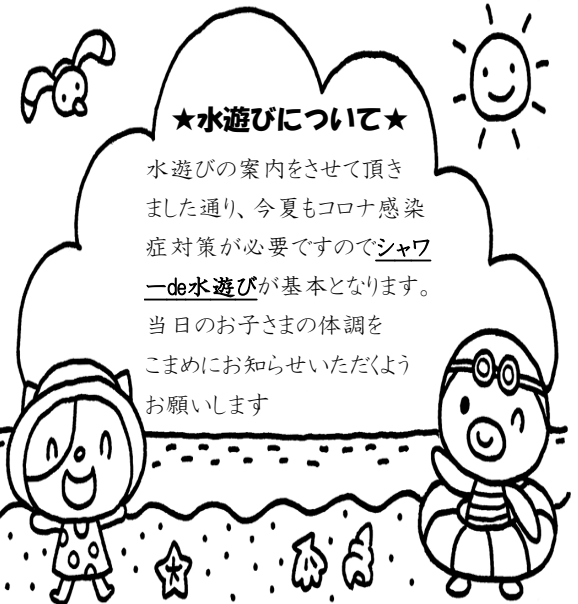 ★水遊びについて★
水遊びの案内をさせて頂き
ました通り、今夏もコロナ感染
症対策が必要ですのでシャワ
ーde水遊びが基本となります。
当日のお子さまの体調を
こまめにお知らせいただくよう
お願いします